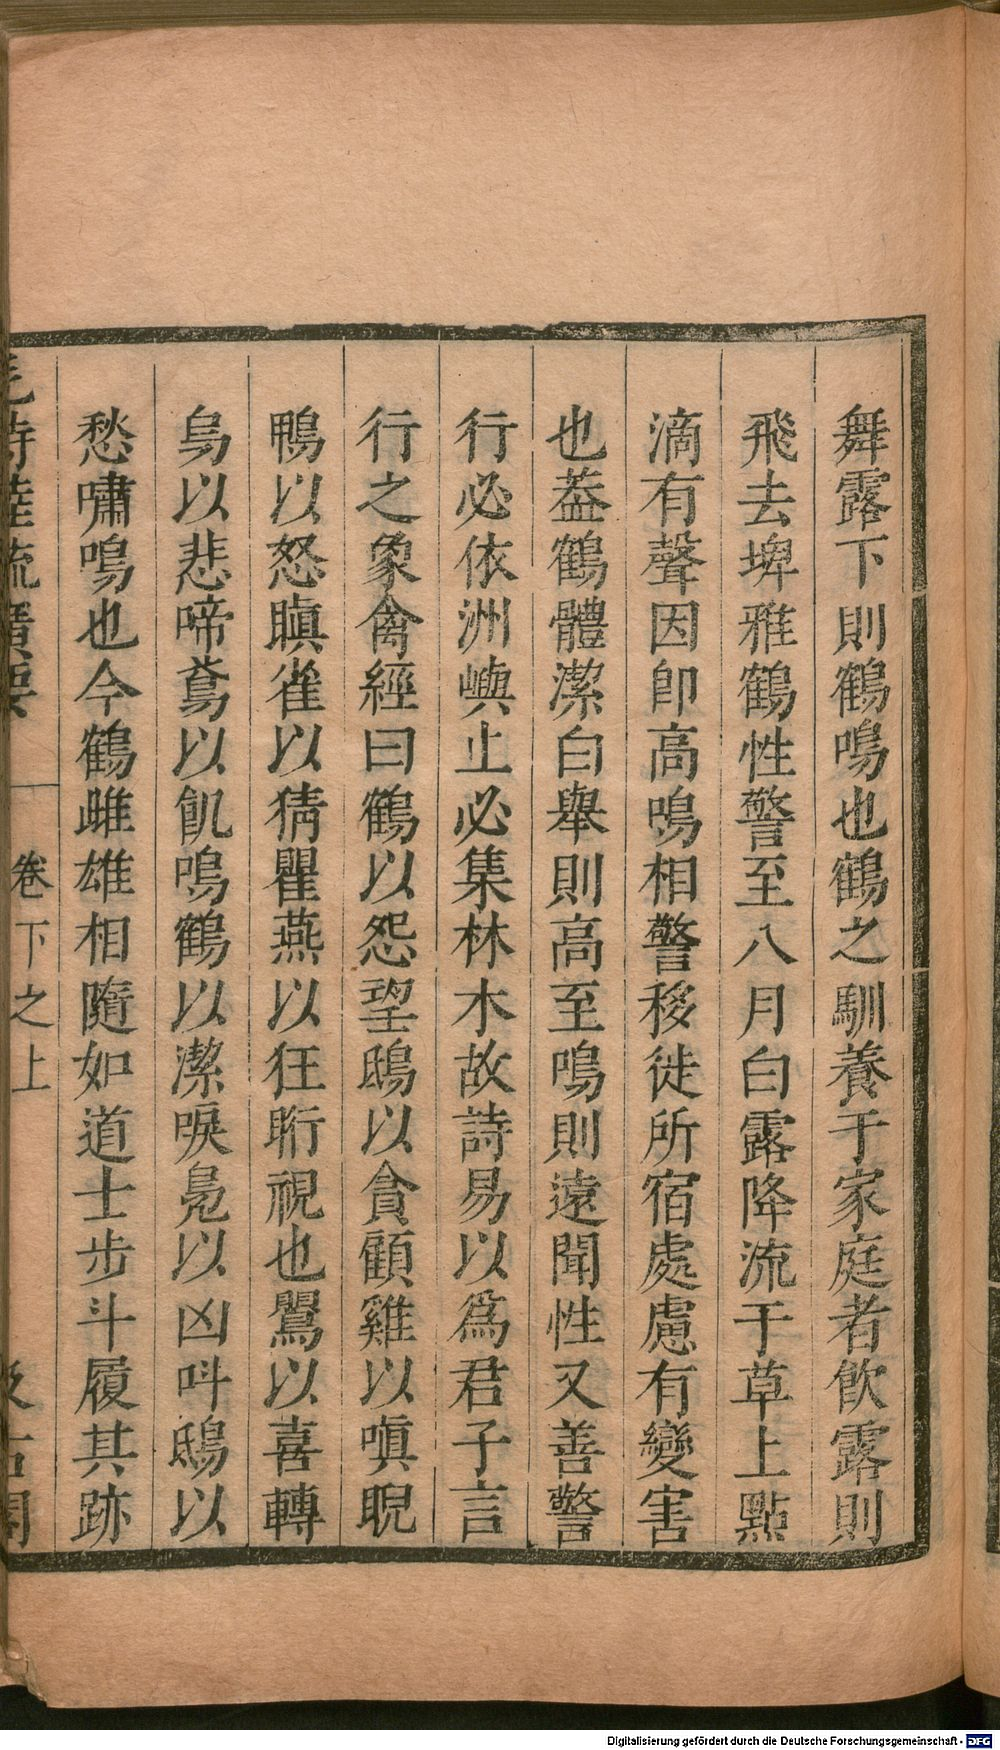 舞露下則鶴鳴也鶴之馴養于家庭者飲露則
飛去埤雅鶴性警至八月白露降流于草上點
滴有聲因即高鳴相警移徙所宿處慮有變害
也葢鶴體潔白舉則高至鳴則遠聞性又善警
行必依洲嶼止必集林木故詩易以爲君子言
行之象禽經曰鶴以怨望鴟以貪顧雞以嗔睨
鴨以怒瞋雀以猜瞿燕以狂䀪視也鸎以喜轉
烏以悲啼鳶以飢鳴鶴以潔唳鳧以凶呌鴟以
愁嘯鳴也今鶴雌雄相隨如道士步斗履其跡
毛詩陸疏廣要 卷下之上 汲古閣
Digitalisierung gefördert durch die Deutsche Forschungsgemeinschaft - DFG